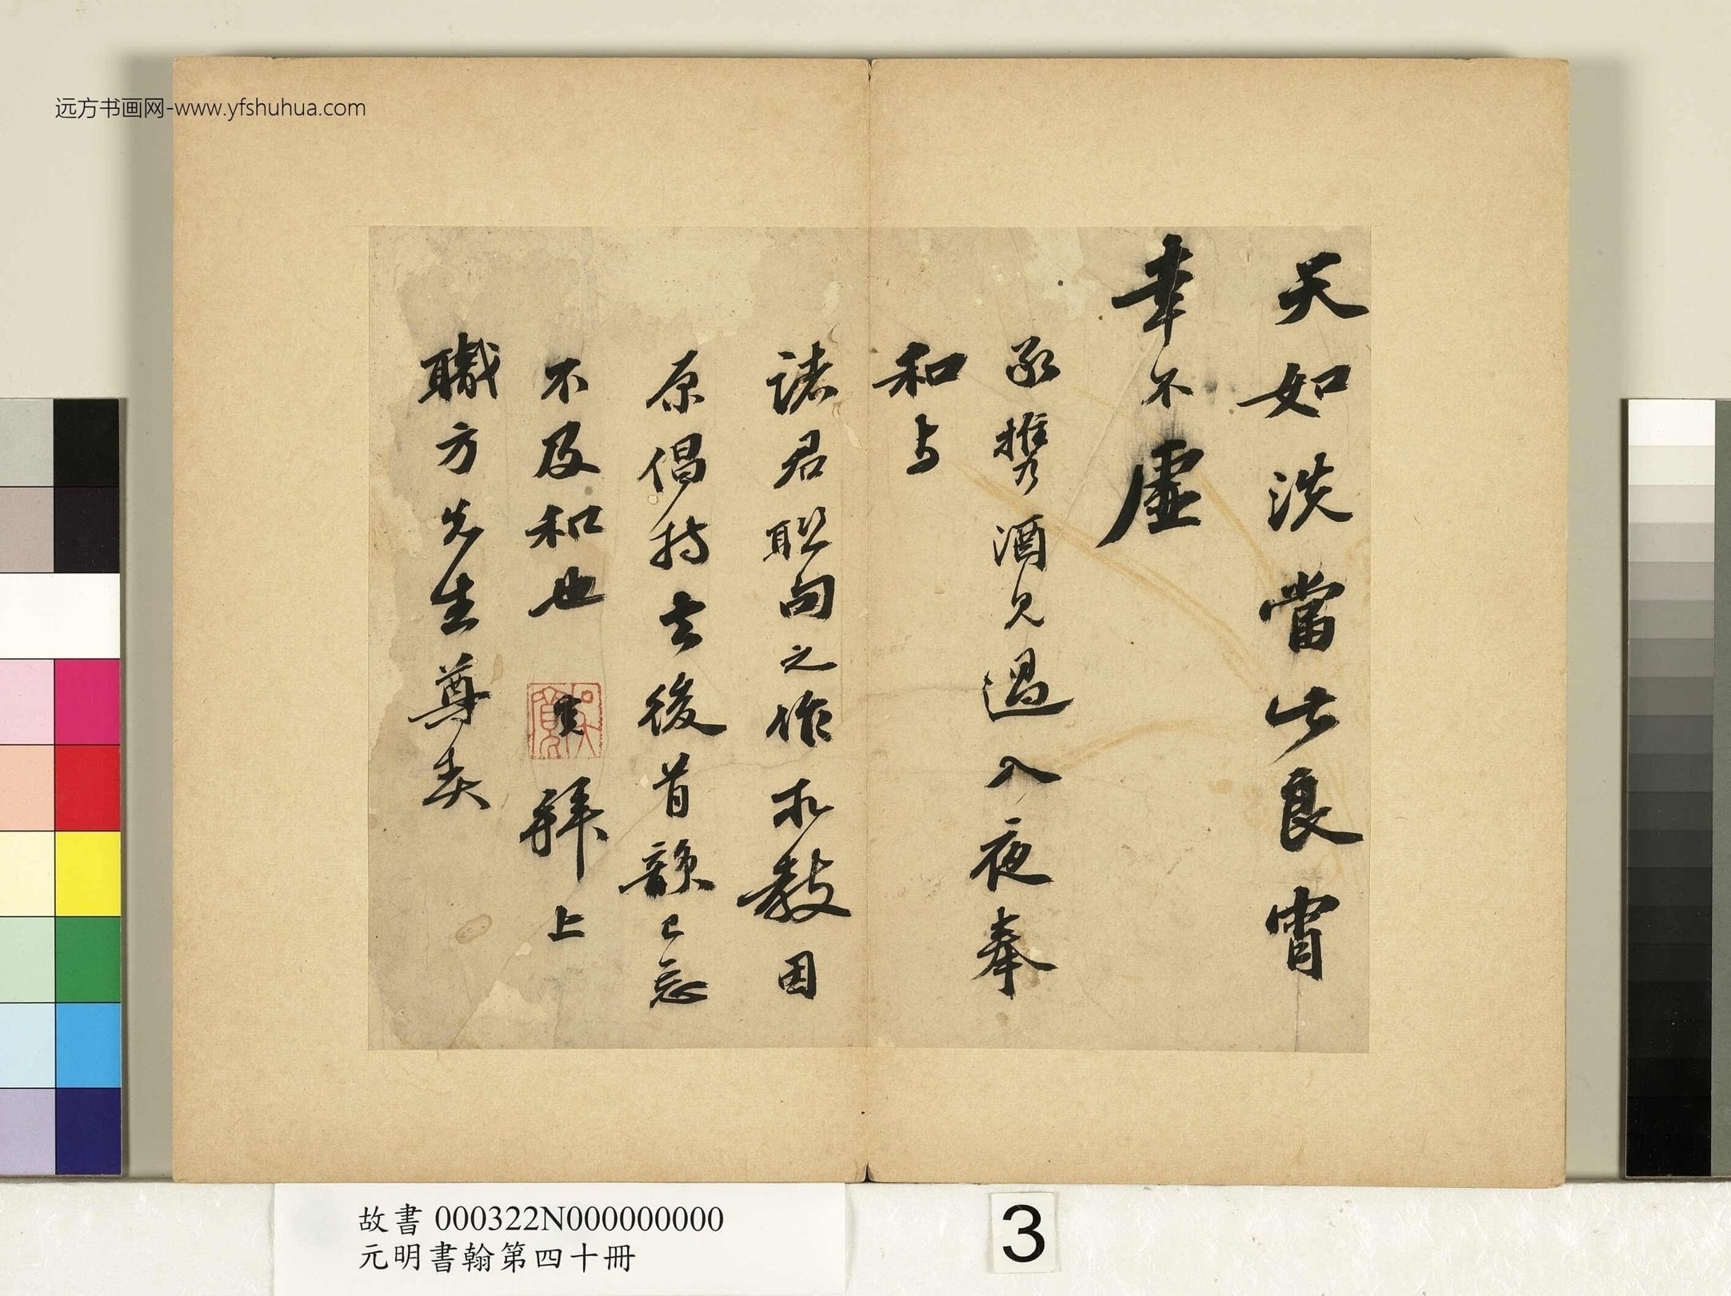 远方书画网-www.yfshuhua.com
天如淡當此良宵
幸不虛
承攜酒見過入夜奉
和与
諸君聯句之作求教因
原倡持去後首韻已忘
不及和也 寬拜上
職方先生尊契
吳寬
故書 000322N000000000
元明書翰第四十冊
3